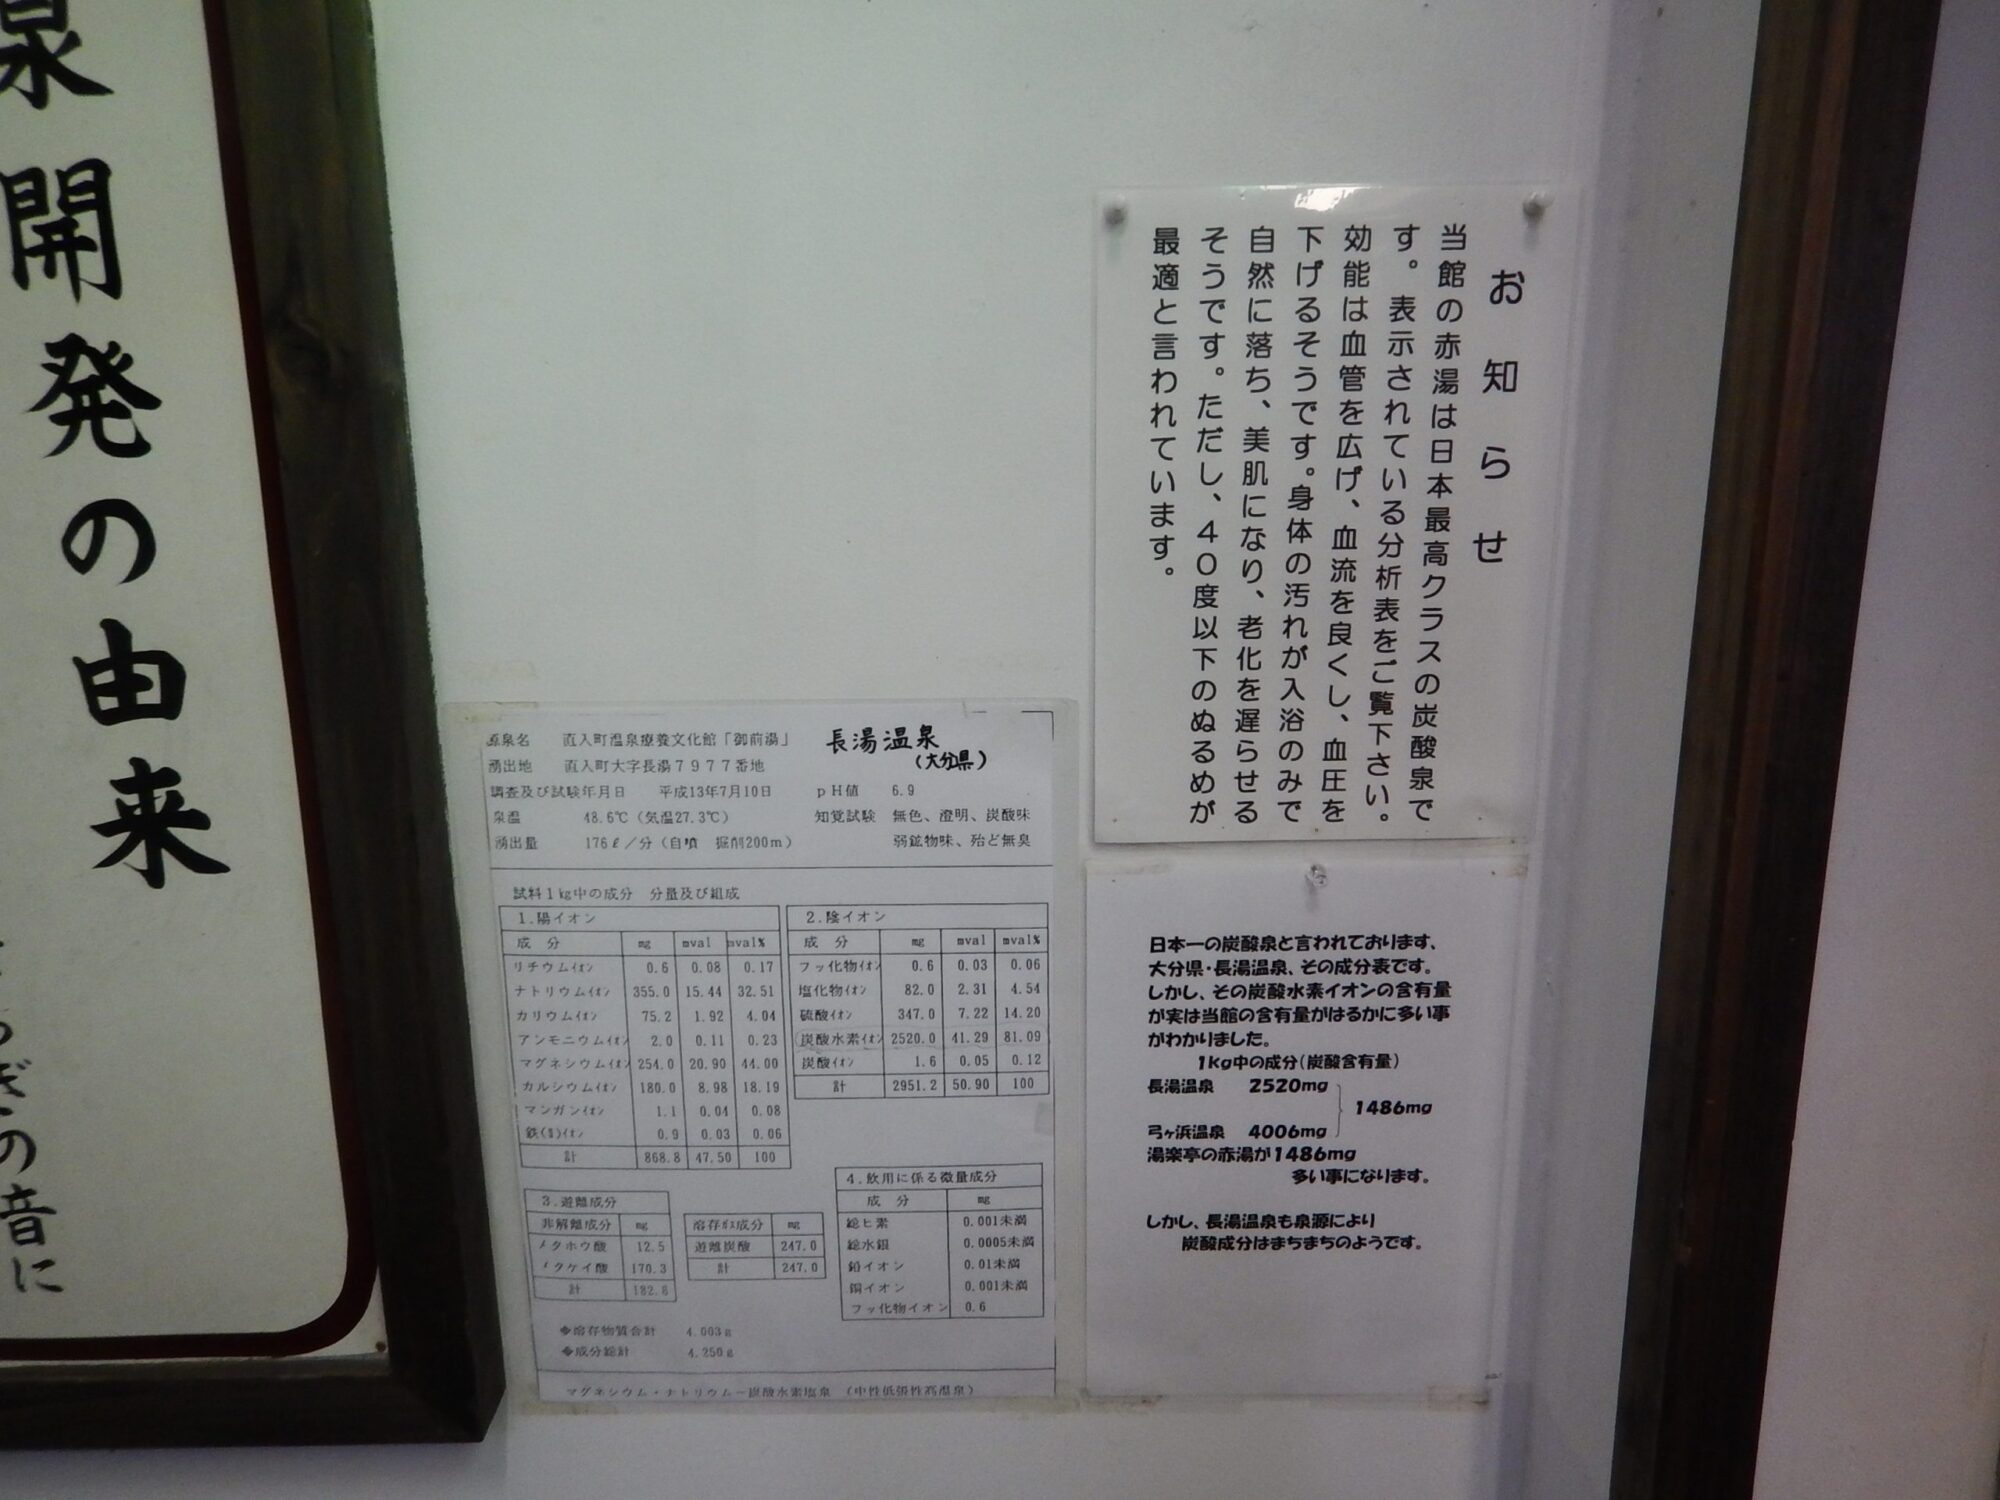 泉開発の由来
ぎの音に
お知らせ
当館の赤湯は日本最高クラスの炭酸泉で
す。表示されている分析表をご覧下さい。
効能は血管を広げ、血流を良くし、血圧を
下げるそうです。身体の汚れが入浴のみで
自然に落ち、美肌になり、老化を遅らせる
そうです。ただし、40度以下のぬるめが
最適と言われています。
源泉名 直入町温泉療養文化館「御前湯」 長湯温泉
(大分県)
湧出地 直入町大字長湯7977番地
調査及び試験年月日 平成13年7月10日 pH値 6.9
泉温 48.6℃(気温27.3℃) 知覚試験 無色、澄明、炭酸味
湧出量 176ℓ/分(自噴 掘削200m) 弱鉱物味、殆ど無臭
試料1kg中の成分 分量及び組成
1.陽イオン
成分 mg mval mval%
リチウムイオン 0.6 0.08 0.17
ナトリウムイオン 355.0 15.44 32.51
カリウムイオン 75.2 1.92 4.04
アンモニウムイオン 2.0 0.11 0.23
マグネシウムイオン 254.0 20.90 44.00
カルシウムイオン 180.0 8.98 18.19
マンガンイオン 1.1 0.04 0.08
鉄(Ⅱ)イオン 0.9 0.03 0.06
計 868.8 47.50 100
2.陰イオン
成分 mg mval mval%
フッ化物イオン 0.6 0.03 0.06
塩化物イオン 82.0 2.31 4.54
硫酸イオン 347.0 7.22 14.20
炭酸水素イオン 2520.0 41.29 81.09
炭酸イオン 1.6 0.05 0.12
計 2951.2 50.90 100
3.遊離成分
非解離成分 mg
メタホウ酸 12.5
メタケイ酸 170.3
計 182.8
溶存ガス成分 mg
遊離炭酸 247.0
計 247.0
4.飲用に係る微量成分
成分 mg
総ヒ素 0.001未満
総水銀 0.0005未満
鉛イオン 0.01未満
銅イオン 0.001未満
フッ化物イオン 0.6
◆溶存物質合計 4.003g
◆成分総計 4.250g
マグネシウム・ナトリウム-炭酸水素塩泉 (中性低張性高温泉)
日本一の炭酸泉と言われております、
大分県・長湯温泉、その成分表です。
しかし、その炭酸水素イオンの含有量
が実は当館の含有量がはるかに多い事
がわかりました。
1kg中の成分(炭酸含有量)
長湯温泉 2520mg
1486mg
弓ヶ浜温泉 4006mg
湯楽亭の赤湯が1486mg
多い事になります。
しかし、長湯温泉も泉源により
炭酸成分はまちまちのようです。